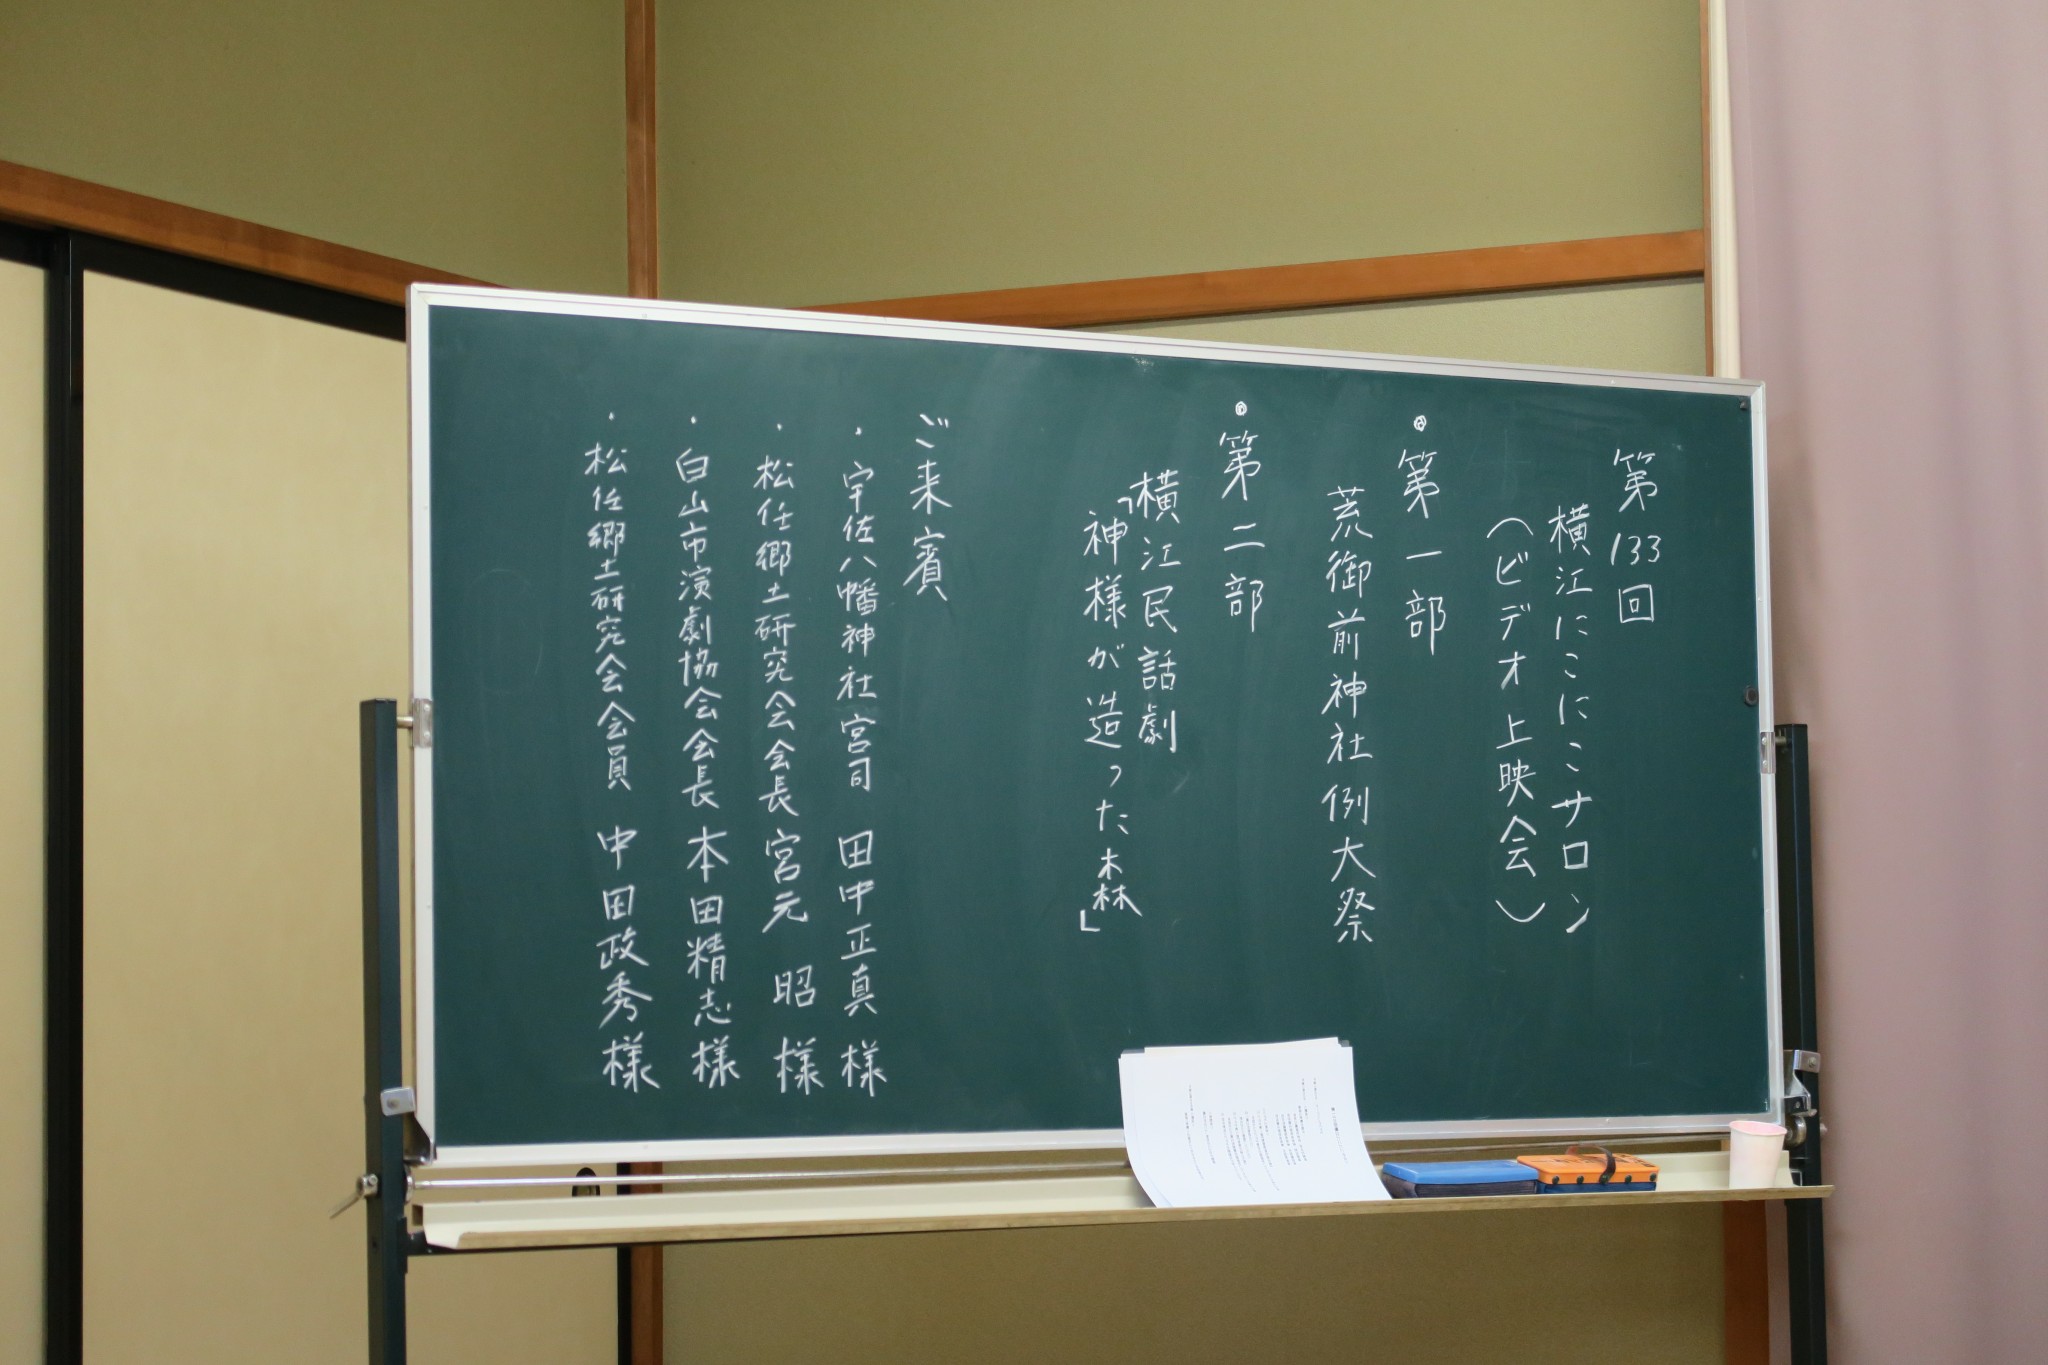 第133回
横江にこにこサロン
(ビデオ上映会)
◎第一部
荒御前神社例大祭
◎第二部
横江民話劇
「神様が造った森」
ご来賓
・宇佐八幡神社宮司 田中正真様
・松任郷土研究会会長 宮元 昭様
・白山市演劇協会会長 本田精志様
・松任郷土研究会会員 中田政秀様